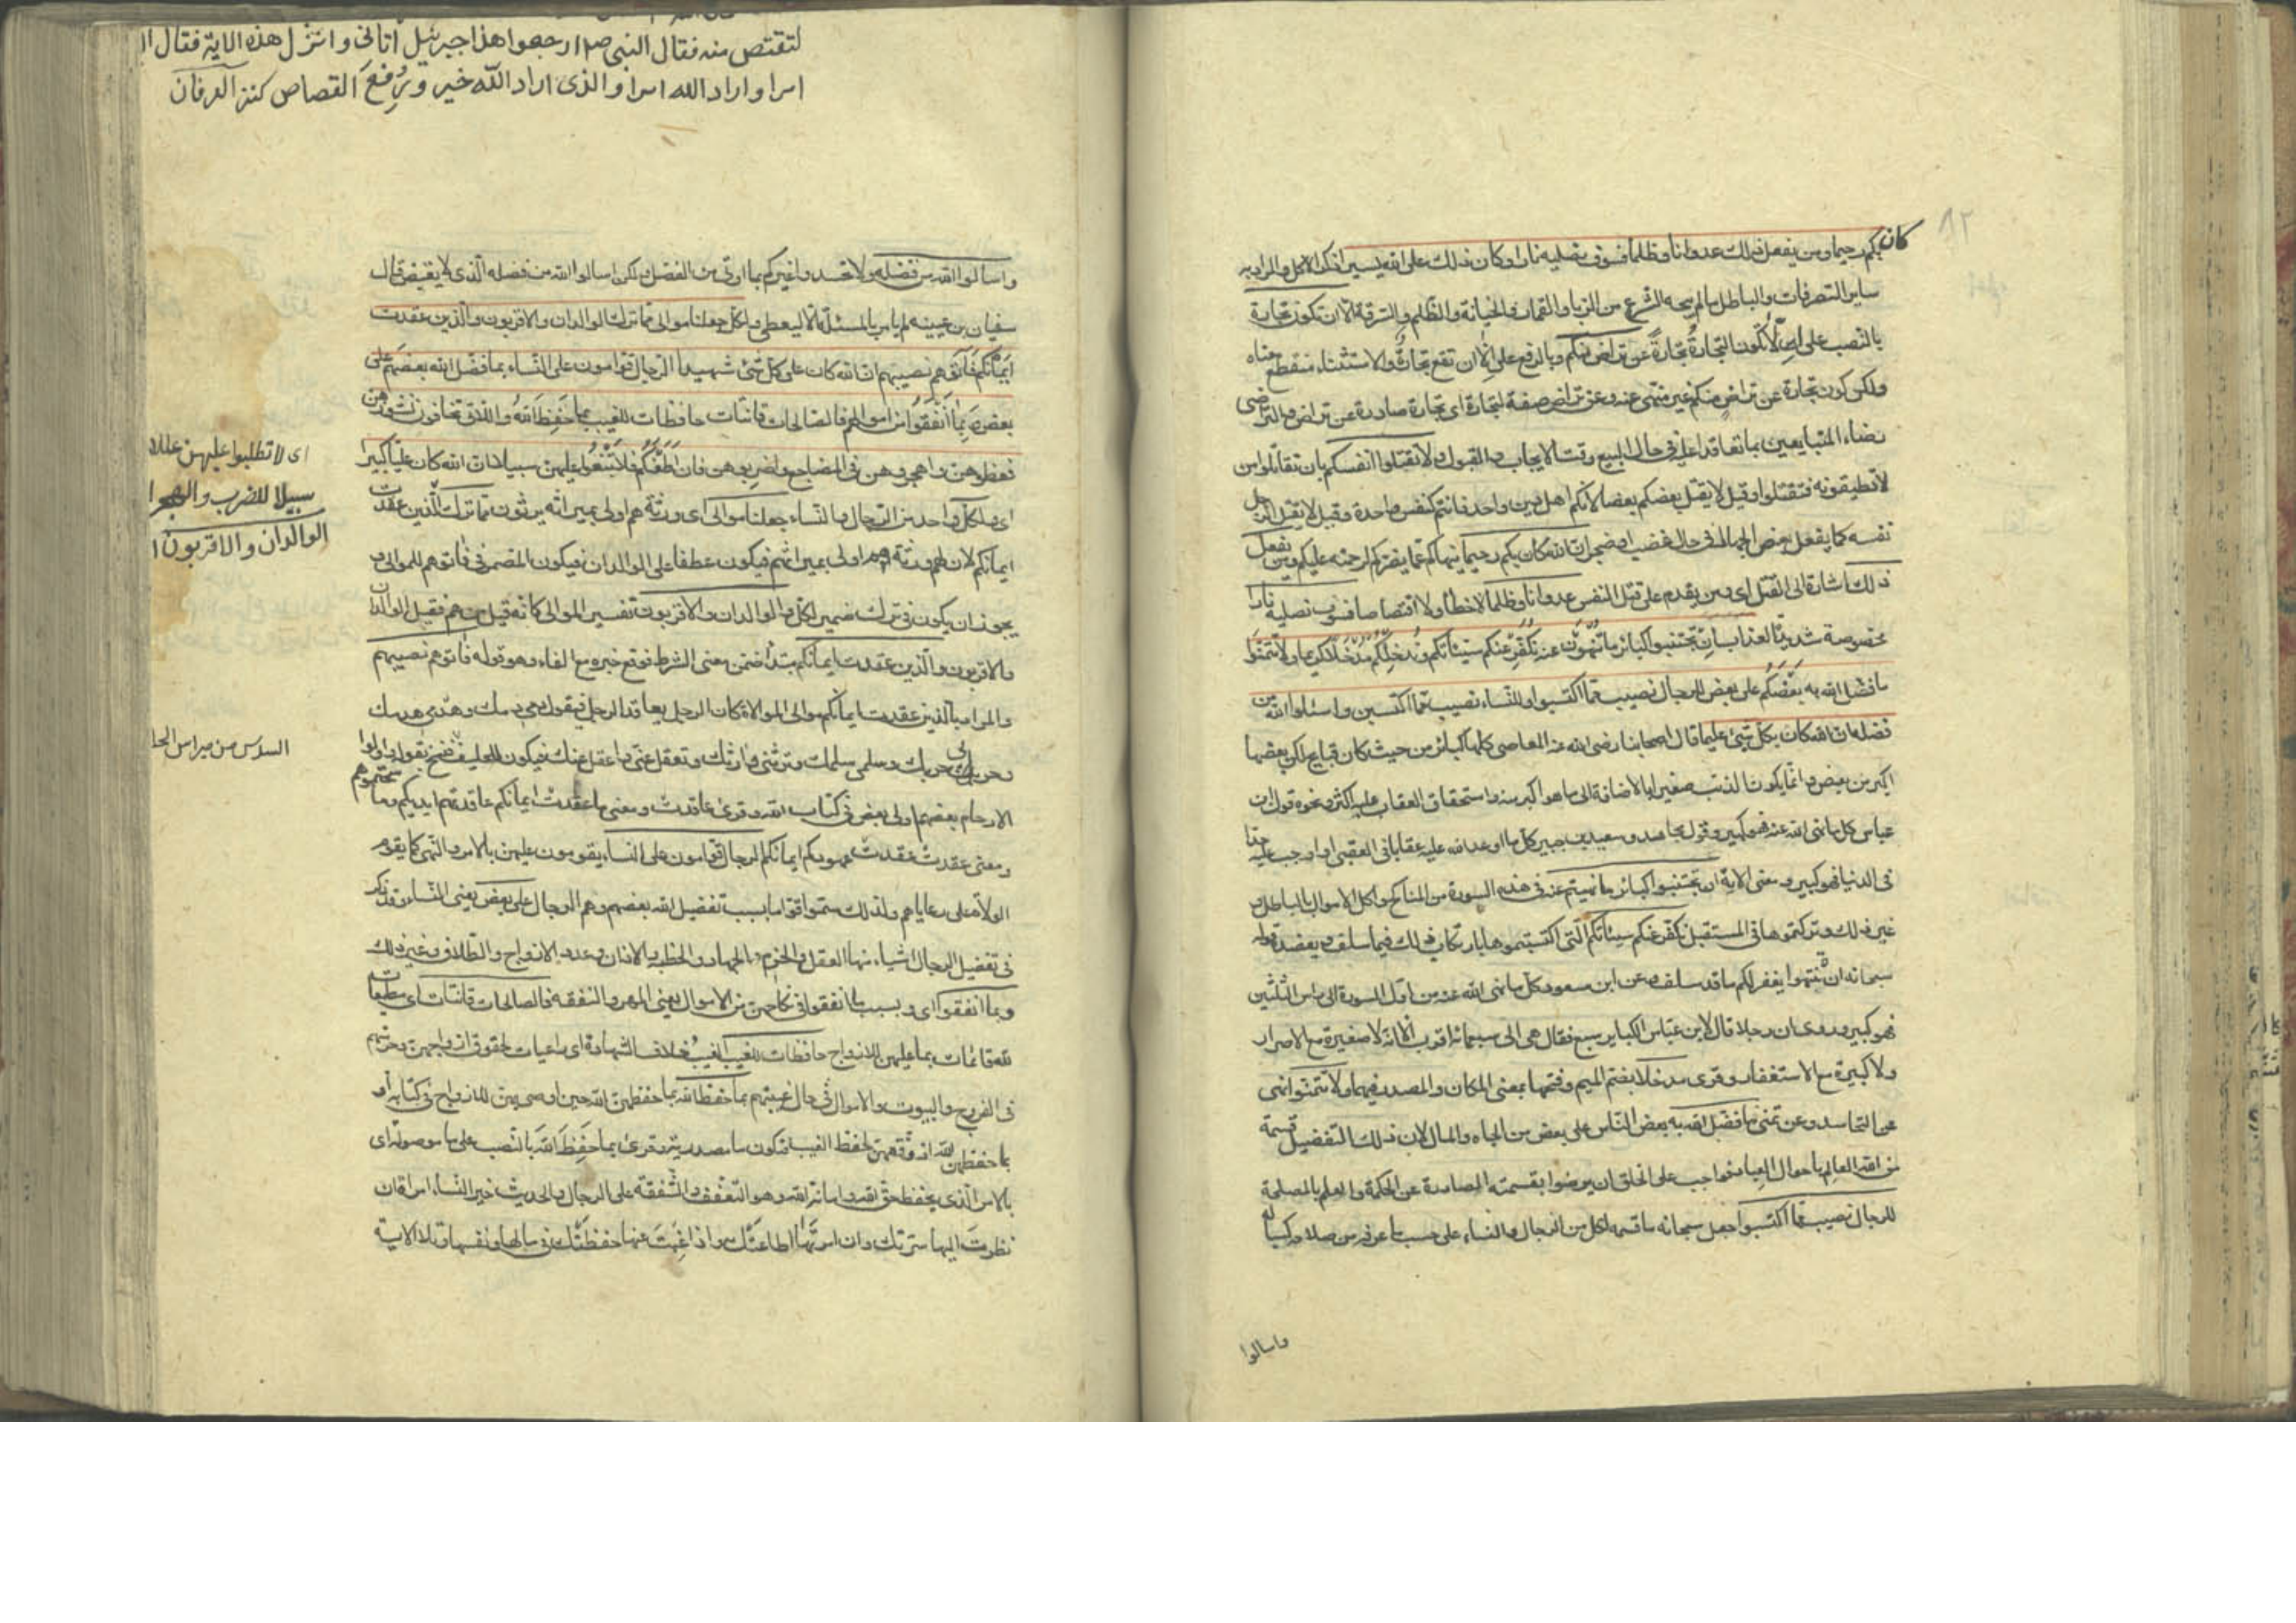 كان
بكم رحيما ومن يفعل ذلك عدوانا وظلما فسوف نصليه نارا وكان ذلك على الله يسيرا ذكر الاكل والمراد به
ساير التصرفات والباطل ما لم يبحه الشرع من الربا والقمار والخيانة والظلم والسرقة الا ان تكون تجارة
بالنصب على الا ان تكون التجارة تجارة عن تراض منكم وبالرفع على الا ان تقع تجارة والاستثناء منقطع معناه
ولكن كون تجارة عن تراض منكم غير منهى عنه وعن تراض صفة لتجارة اى تجارة صادرة عن تراض والتراضى
رضاء المتبايعين بما تعاقدا عليه فى حال البيع وقت الايجاب والقبول ولا تقتلوا انفسكم بان تقاتلوا من
لا تطيقونه فتقتلوا وقيل لا يقتل بعضكم بعضا لانكم اهل دين واحد فانتم كنفس واحدة وقيل لا يقتل الرجل
نفسه كما يفعل بعض الجهال فى حال غضب او ضجر ان الله كان بكم رحيما ينهاكم عما يضركم لرحمته عليكم ومن يفعل
ذلك اشارة الى القتل اى ومن يقدم على قتل النفس عدوانا وظلما لا خطأ ولا اقتصاصا فسوف نصليه نارا
مخصوصة شديدة العذاب ان تجتنبوا كبائر ما تنهون عنه نكفر عنكم سيئاتكم وندخلكم مدخلا كريما ولا تتمنوا
ما فضل الله به بعضكم على بعض للرجال نصيب مما اكتسبوا وللنساء نصيب مما اكتسبن واسئلوا الله من
فضله ان الله كان بكل شئ عليما قال اصحابنا رضى الله عنهم المعاصى كلها كبائر من حيث كان قبايح لكن بعضها
اكبر من بعض وانما يكون الذنب صغيرا بالاضافة الى ما هو اكبر منه واستحقاق العقاب عليه اكثر ونحوه قول ابن
عباس كل ما نهى الله عنه فهو كبير وقول مجاهد وسعيد بن جبير كل ما اوعد الله عليه عقابا فى العقبى او اوجب عليه حدا
فى الدنيا فهو كبير ومعنى الاية ان تجتنبوا كبائر ما نهيتم عنه فى هذه السورة من المناكح واكل الاموال بالباطل و
غير ذلك وتركتموها فى المستقبل نكفر عنكم سيئاتكم التى اكتسبتموها بارتكاب ذلك فيما سلف ويعضده قوله
سبحانه ان ينتهوا يغفر لهم ما قد سلف وعن ابن مسعود كل ما نهى الله عنه من اول السورة الى راس الثلثين
فهو كبير وروى ان رجلا قال لابن عباس الكباير سبع فقال هى الى سبعمائة اقرب لانه لا صغيرة مع الاصرار
ولا كبيرة مع الاستغفار وقرى مدخلا بضم الميم وفتحها بمعنى المكان والمصدر فيهما ولا تتمنوا نهى
عن التحاسد وعن تمنى ما فضل الله به بعض الناس على بعض من الجاه والمال لان ذلك التفضيل قسمة
من الله العالم باحوال العباد فواجب على الخلق ان يرضوا بقسمته الصادرة عن الحكمة والعلم بالمصلحة
للرجال نصيب مما اكتسبوا جعل سبحانه ما قسمه لكل من الرجال والنساء على حسب ما عرفه من صلاحه كسبا له
واسالوا
لتقتص منه فقال النبى صم ارجعوا هذا جبرئيل اتانى وانزل هذه الاية فقال ا
امرا واراد الله امرا والذى اراد الله خير ورفع القصاص كنز العرفان
واسالوا الله من فضله ولا تحسدوا غيركم بما اوتى من الفضل ولكن اسالوا الله من فضله الذى لا يغيض قال
سفيان بن عيينه لم يامر بالمسئلة الا ليعطى ولكل جعلنا موالى مما ترك الوالدان والاقربون والذين عقدت
ايمانكم فاتوهم نصيبهم ان الله كان على كل شئ شهيدا الرجال قوامون على النساء بما فضل الله بعضهم على
بعض وبما انفقوا من اموالهم فالصالحات قانتات حافظات للغيب بما حفظ الله واللاتى تخافون نشوزهن
فعظوهن واهجروهن فى المضاجع واضربوهن فان اطعنكم فلا تبغوا عليهن سبيلا ان الله كان عليا كبيرا
اى ولكل واحد من الرجال والنساء جعلنا موالى اى ورثة هم اولى بميراثه يرثون مما ترك الذين عقدت
ايمانكم لان لهم ورثة هم اولى بميراثهم فيكون عطفا على الوالدان فيكون المضمر فى فاتوهم للموالى و
يجوز ان يكون فى ترك ضمير لكل والوالدان والاقربون تفسير الموالى كانه قيل من هم فقيل الوالدان
والاقربون والذين عقدت ايمانكم مبتدأ ضمن معنى الشرط فوقع خبره مع الفاء وهو قوله فاتوهم نصيبهم
والمراد بالذين عقدت ايمانكم موالى الموالاة كان الرجل يعاقد الرجل فيقول دمى دمك وهدمى هدمك
وحربى حربك وسلمى سلمك وترثنى وارثك وتعقل عنى واعقل عنك فيكون للحليف فنسخ بقوله واولوا
الارحام بعضهم اولى ببعض فى كتاب الله وقرى عاقدت ومعنى عاقدت ايمانكم عاقدتهم ايديكم وماسحتموهم
ومعنى عقدت عقدت عهودكم ايمانكم الرجال قوامون على النساء يقومون عليهن بالامر والنهى كما يقوم
الولاة على رعاياهم ولذلك سموا قواما بسبب تفضيل الله بعضهم وهم الرجال على بعض يعنى النساء وقد ذكر
فى تفضيل الرجال اشياء منها العقل والحزم والجهاد والخطبه والاذان وعدد الازواج والطلاق وغير ذلك
وبما انفقوا اى وبسبب ما انفقوا فى نكاحهن من الاموال يعنى المهر والنفقه فالصالحات قانتات اى مطيعات
لله قائمات بما عليهن للازواج حافظات للغيب الغيب خلاف الشهادة اى راعيات لحقوق ازواجهن وحرمتهم
فى الفروج والبيوت والاموال فى حال غيبتهم بما حفظ الله بما حفظهن الله حين اوصى بهن للازواج فى كتابه او
بما حفظهن الله اذ وفقهن لحفظ الغيب فتكون ما مصدرية وقرى بما حفظ الله بالنصب على ما موصولة اى
بالامر الذى يحفظ حق الله وامانة الله وهو التعفف والشفقه على الرجال والحديث خير النساء امراة ان
نظرت اليها سرتك وان امرتها اطاعتك واذا غبت عنها حفظتك فى مالها ونفسها وتلا الاية
اى لا تطلبوا عليهن عللا
سبيلا للضرب والهجرا
الوالدان والاقربون ا
السدس من ميراس الحل